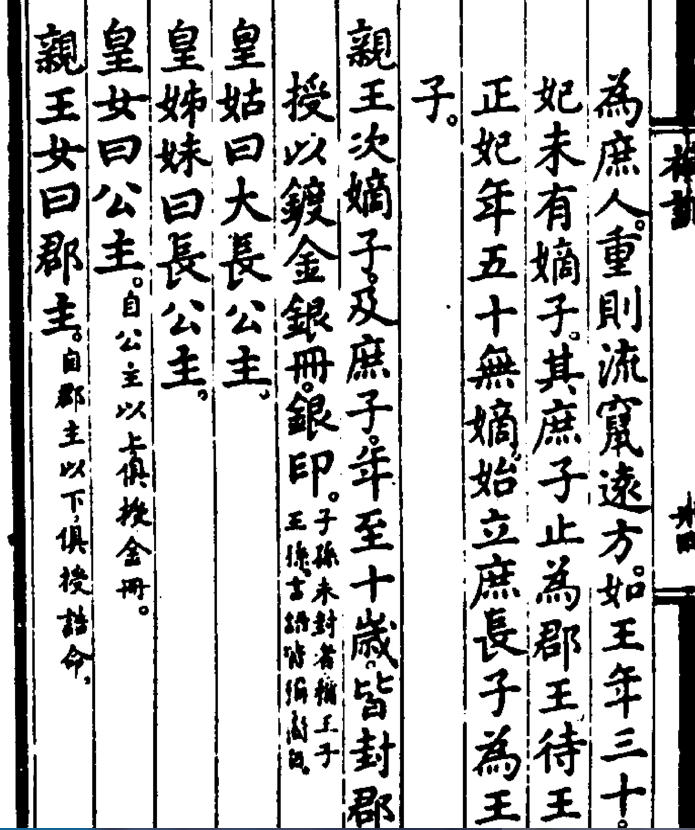 為庶人。重則流竄遠方。如王年三十。
妃未有嫡子。其庶子止為郡王待王
正妃年五十無嫡。始立庶長子為王
子。
親王次嫡子。及庶子。年至十歲。皆封郡
授以鍍金銀冊。銀印。子孫未封者稱王子
王孫。
皇姑曰大長公主。
皇姊妹曰長公主。
皇女曰公主。自公主以上俱授金冊。
親王女曰郡主。自郡主以下，俱授誥命，